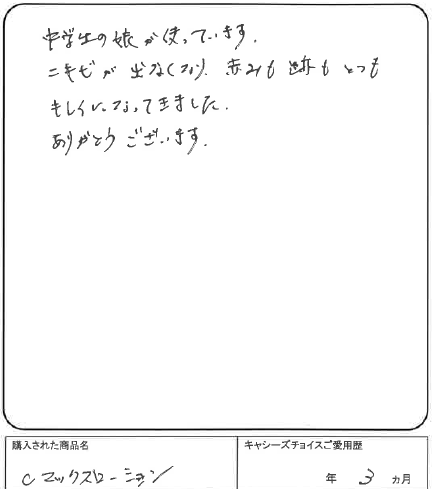 中学生の娘が使っています。
ニキビが出なくなり、赤みも跡もとっても
キレイになってきました。
ありがとうございます。
購入された商品名
キャシーズチョイスご愛用歴
Cマックスローション
年 3 カ月